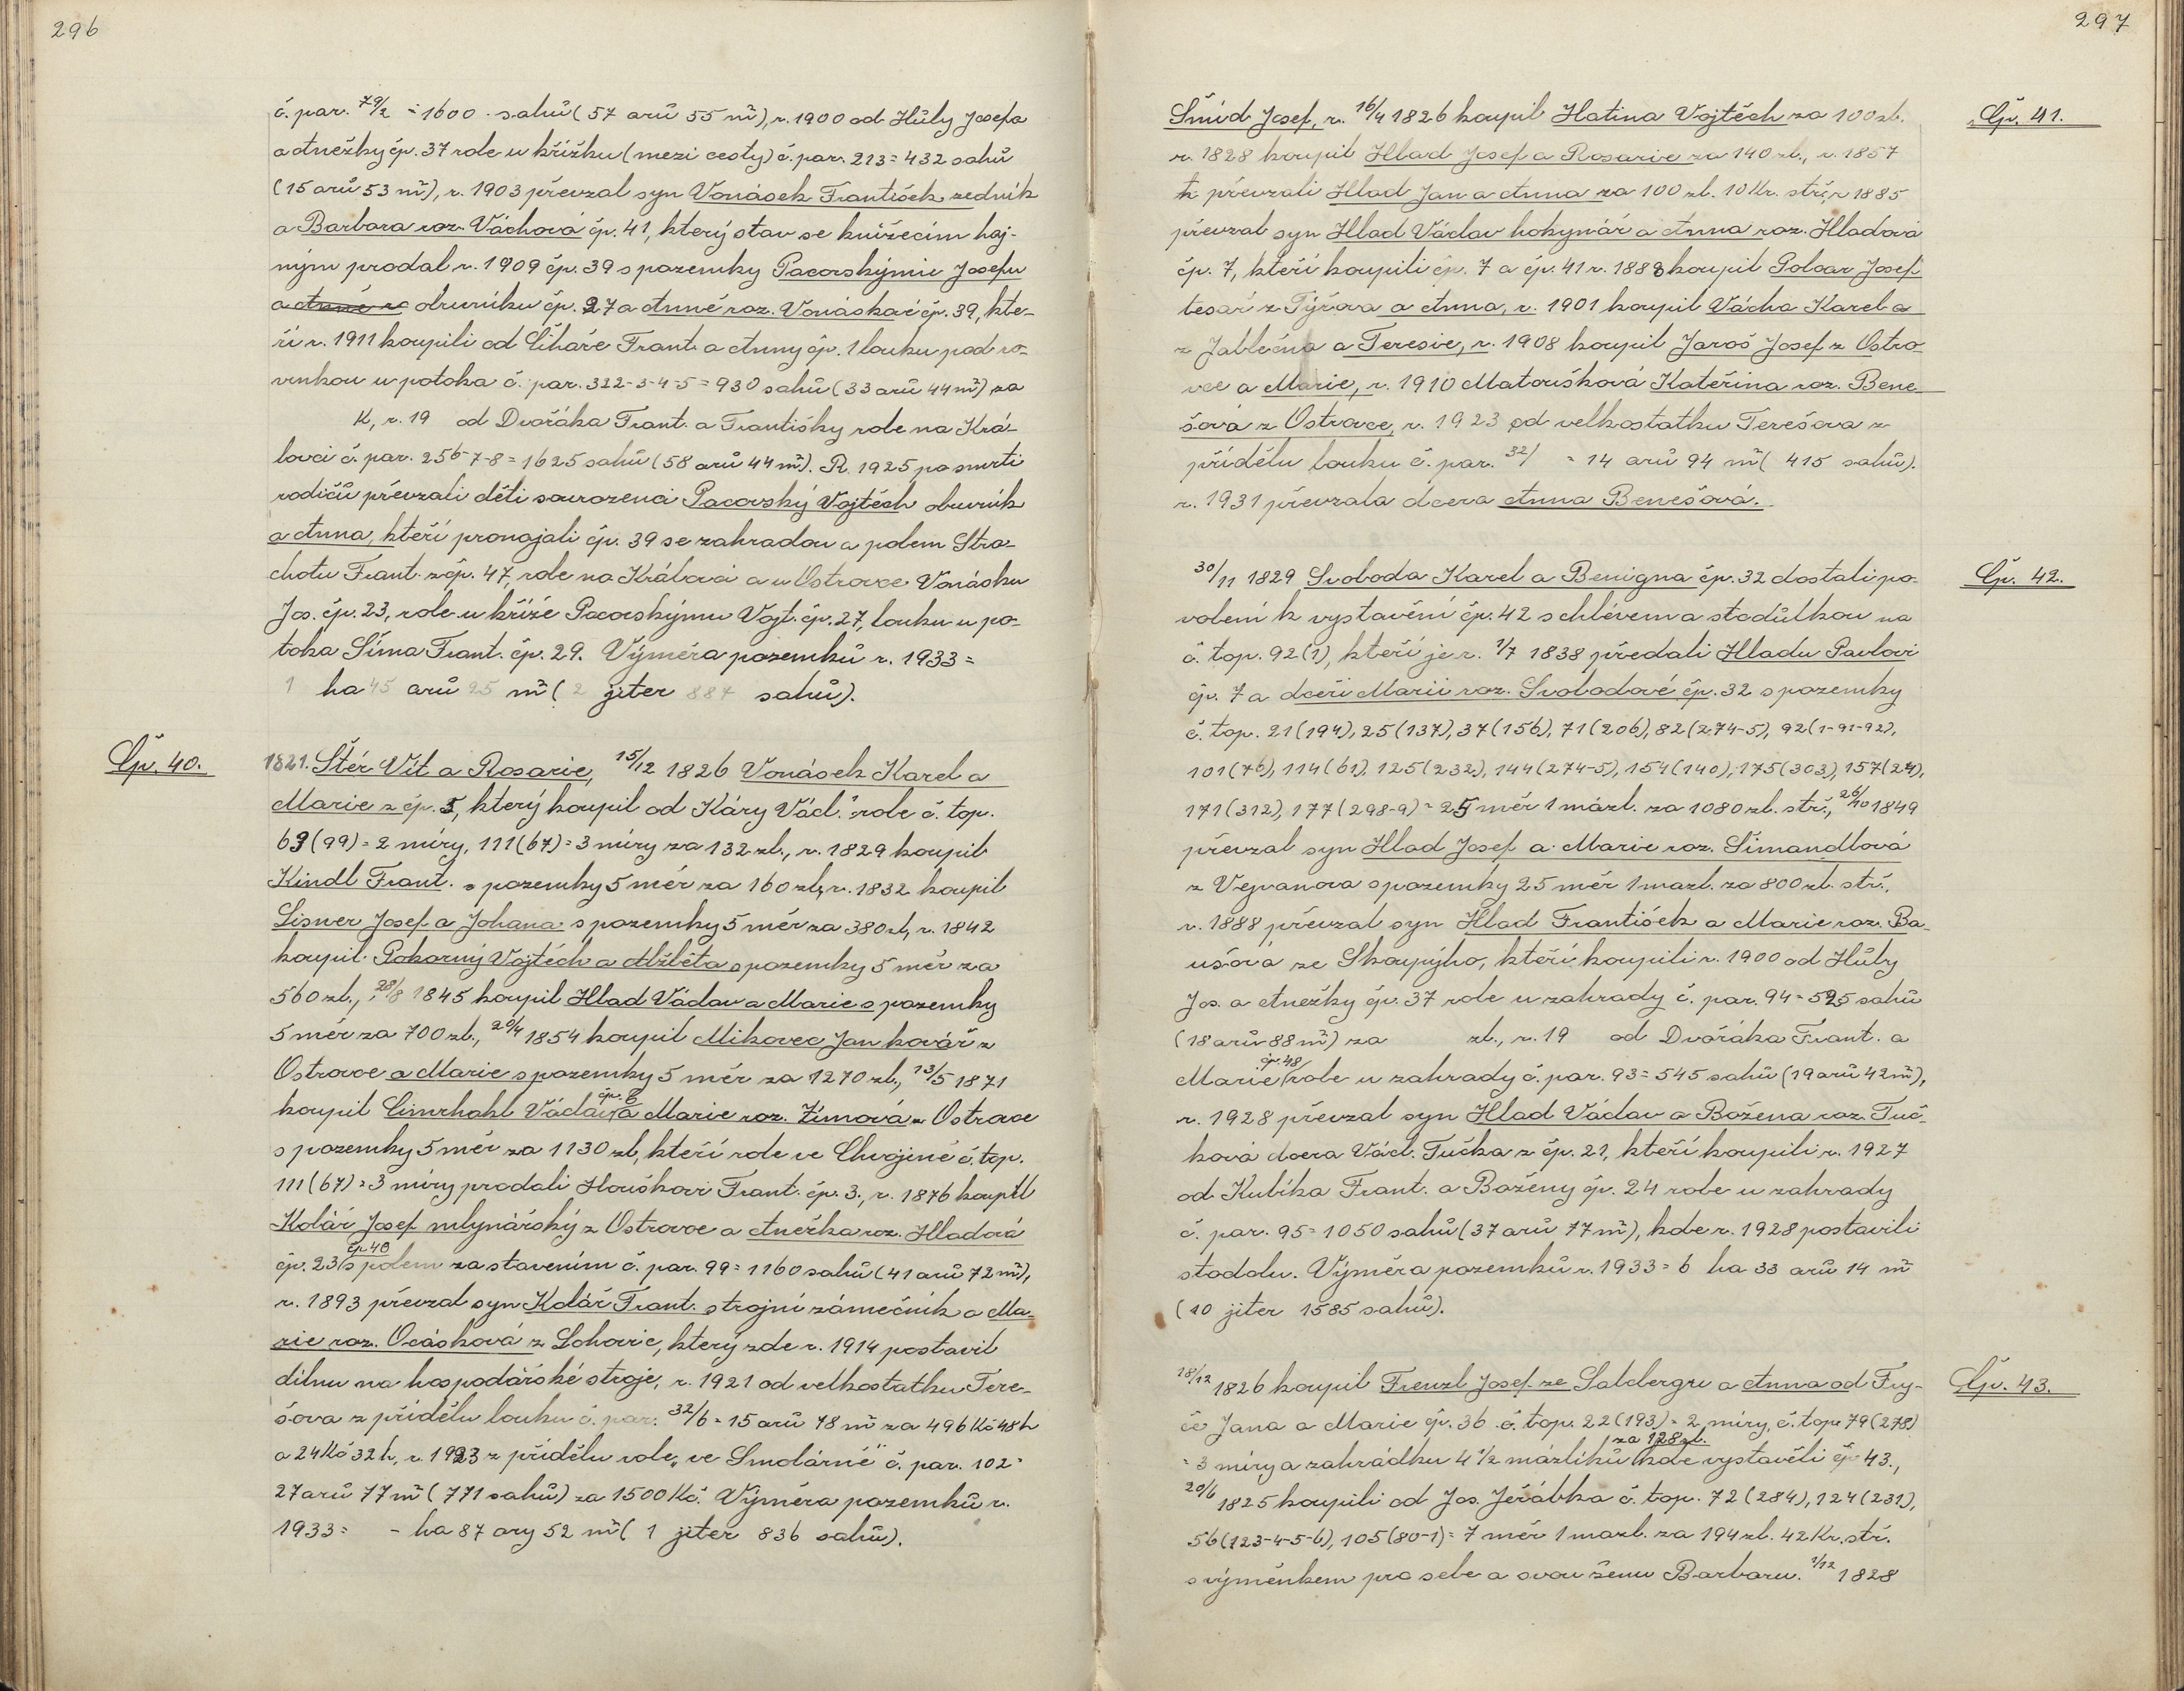 296
č. par. 79/2 = 1600 sahů (57 arů 55 m²), r. 1900 od Hůly Josefa
a Anežky čp. 37 role u křížku (mezi cesty) č. par. 213 = 432 sahů
(15 arů 53 m²), r. 1903 převzal syn Vonásek František zedník
a Barbara roz. Váchová čp. 41, který stav se knížecím haj-
ným prodal r. 1909 čp. 39 s pozemky Pacovskýmu Josefu
a Anně ro obuvníku čp. 27 a Anně roz. Vonáskové čp. 39, kte-
ří r. 1911 koupili od Cihaře Frant. a Anny čp. 1 louku pod ro-
vinkou u potoka č. par. 322-3-4-5 = 930 sahů (33 arů 44 m²) za
K, r. 19 od Dvořáka Frant. a Františky role na Krá-
lovci č. par. 256-7-8 = 1625 sahů (58 arů 44 m²). R. 1925 po smrti
rodičů převzali děti sourozenci Pacovský Vojtěch obuvník
a Anna, kteří pronajali čp. 39 se zahradou a polem Stra-
chotu Frant. z čp. 47, role na Královci a u Ostrovce Vonásku
Jos. čp. 23, role u kříže Pacovskýmu Vojt. čp. 27, louku u po-
toka Šíma Frant. čp. 29. Výměra pozemků r. 1933 =
1 ha 45 arů 25 m² (2 jiter 887 sahů).
Čp. 40.
1821. Štér Vít a Rosarie, 15/12 1826 Vonásek Karel a
Marie z čp. 5, který koupil od Káry Václ. role č. top.
63 (99) = 2 míry, 111 (67) = 3 míry za 132 zl., r. 1829 koupil
Kindl Frant. s pozemky 5 měr za 160 zl., r. 1832 koupil
Lisner Josef a Johana s pozemky 5 měr za 380 zl., r. 1842
koupil Pokorný Vojtěch a Alžběta s pozemky 5 měr za
560 zl., 28/8 1845 koupil Hlad Václav a Marie s pozemky
5 měr za 700 zl., 20/4 1854 koupil Mikovec Jan kovář z
Ostrovce a Marie s pozemky 5 měr za 1270 zl., 13/5 1871
čp. 6
koupil Cimrhakl Václav a Marie roz. Zímová z Ostrovce
s pozemky 5 měr za 1130 zl., kteří role ve Chvojině č. top.
111 (67) = 3 míry prodali Houškovi Frant. čp. 3., r. 1876 koupil
Kolář Josef mlynářský z Ostrovce a Anežka roz. Hladová
čp. 40
čp. 23 s polem za stavením č. par. 99 = 1160 sahů (41 arů 72 m²),
r. 1893 převzal syn Kolář Frant. strojní zámečník a Ma-
rie roz. Ocásková z Lohovic, který zde r. 1914 postavil
dílnu na hospodářské stroje, r. 1921 od velkostatku Tere-
šova z přídělu louku č. par. 32/6 = 15 arů 78 m² za 496 Kč 48 h
a 24 Kč 32 h, r. 1923 z přídělu role „ve Smolárně" č. par. 102 =
27 arů 77 m² (771 sahů) za 1500 Kč. Výměra pozemků r.
1933 = - ha 87 ary 52 m² (1 jiter 836 sahů).
297
Čp. 41.
Šmíd Josef, r. 16/4 1826 koupil Hatina Vojtěch za 100 zl.
r. 1828 koupil Hlad Josef a Rosarie za 140 zl., r. 1857
převzali Hlad Jan a Anna za 100 zl. 10 Kr. stř., r. 1885
převzal syn Hlad Václav hokynář a Anna roz. Hladová
čp. 7, kteří koupili čp. 7 a čp. 41 r. 1888 koupil Polcar Josef
tesař z Týřova a Anna, r. 1901 koupil Vácha Karel a
z Jablečna a Teresie, r. 1908 koupil Jaroš Josef z Ostro-
vce a Marie, r. 1910 Matoušková Kateřina roz. Bene-
šová z Ostrovce, r. 1923 od velkostatku Terešova z
přídělu louku č. par. 32/ = 14 arů 94 m² (415 sahů).
r. 1931 převzala dcera Anna Benešová.
Čp. 42.
30/11 1829 Svoboda Karel a Benigna čp. 32 dostali po-
volení k vystavění čp. 42 s chlévem a stodůlkou na
č. top. 92 (1), kteří je r. 1/7 1838 předali Hladu Pavlovi
čp. 7 a dceři Marii roz. Svobodové čp. 32 s pozemky
č. top. 21 (194), 25 (137), 37 (156), 71 (206), 82 (274-5), 92 (1-91-92),
101 (76), 114 (61), 125 (232), 144 (274-5), 154 (140), 175 (303), 157 (24),
171 (312), 177 (298-9) = 25 měr 1 mázl. za 1080 zl. stř., 26/10 1849
převzal syn Hlad Josef a Marie roz. Šimandlová
z Vejvanova s pozemky 25 měr 1 mazl. za 800 zl. stř.,
r. 1888 převzal syn Hlad František a Marie roz. Ba-
ušová ze Skoupýho, kteří koupili r. 1900 od Hůly
Jos. a Anežky čp. 37 role u zahrady č. par. 94 = 525 sahů
(18 arů 88 m²) za zl., r. 19 od Dvořáka Frant. a
čp. 48
Marie role u zahrady č. par. 93 = 545 sahů (19 arů 42 m²),
r. 1928 převzal syn Hlad Václav a Božena roz. Tuč-
ková dcera Václ. Tučka z čp. 21, kteří koupili r. 1927
od Kubíka Frant. a Boženy čp. 24 role u zahrady
č. par. 95 = 1050 sahů (37 arů 77 m²), kde r. 1928 postavili
stodolu. Výměra pozemků r. 1933 = 6 ha 33 arů 14 m²
(10 jiter 1585 sahů).
Čp. 43.
18/12 1826 koupil Frenzl Josef ze Saldergru a Anna od Fry-
če Jana a Marie čp. 36 č. top. 22 (193) = 2 míry, č. top. 79 (278)
za 128 zl.
= 3 míry a zahrádku 4 1/2 mázlíků kde vystavěli čp. 43.,
20/6 1825 koupili od Jos. Jeřábka č. top. 72 (284), 124 (231),
56 (123-4-5-6), 105 (80-1) = 7 měr 1 mazl. za 194 zl. 42 Kr. stř.
s výměnkem pro sebe a svou ženu Barboru. 1/12 1828